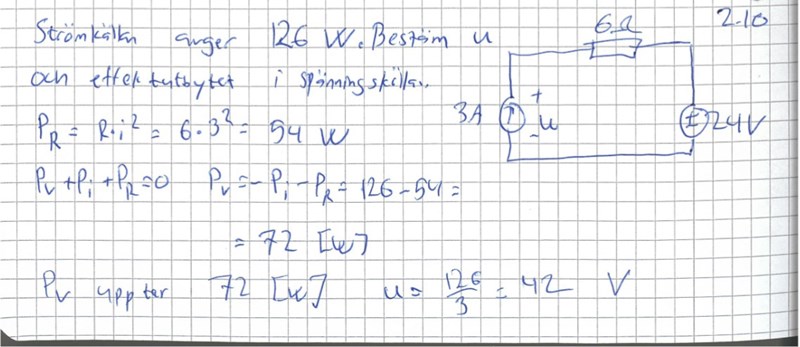 Strömkällan avger 126 W. Bestäm u 6Ω 2.10
och effektutbytet i spänningskällan.
3A + u - ± 24V
P_R = R·i² = 6·3² = 54 W
P_v + P_i + P_R = 0 P_v = -P_i - P_R = 126 - 54 =
= 72 [W]
P_v upptar 72 [W] u = 126/3 = 42 V